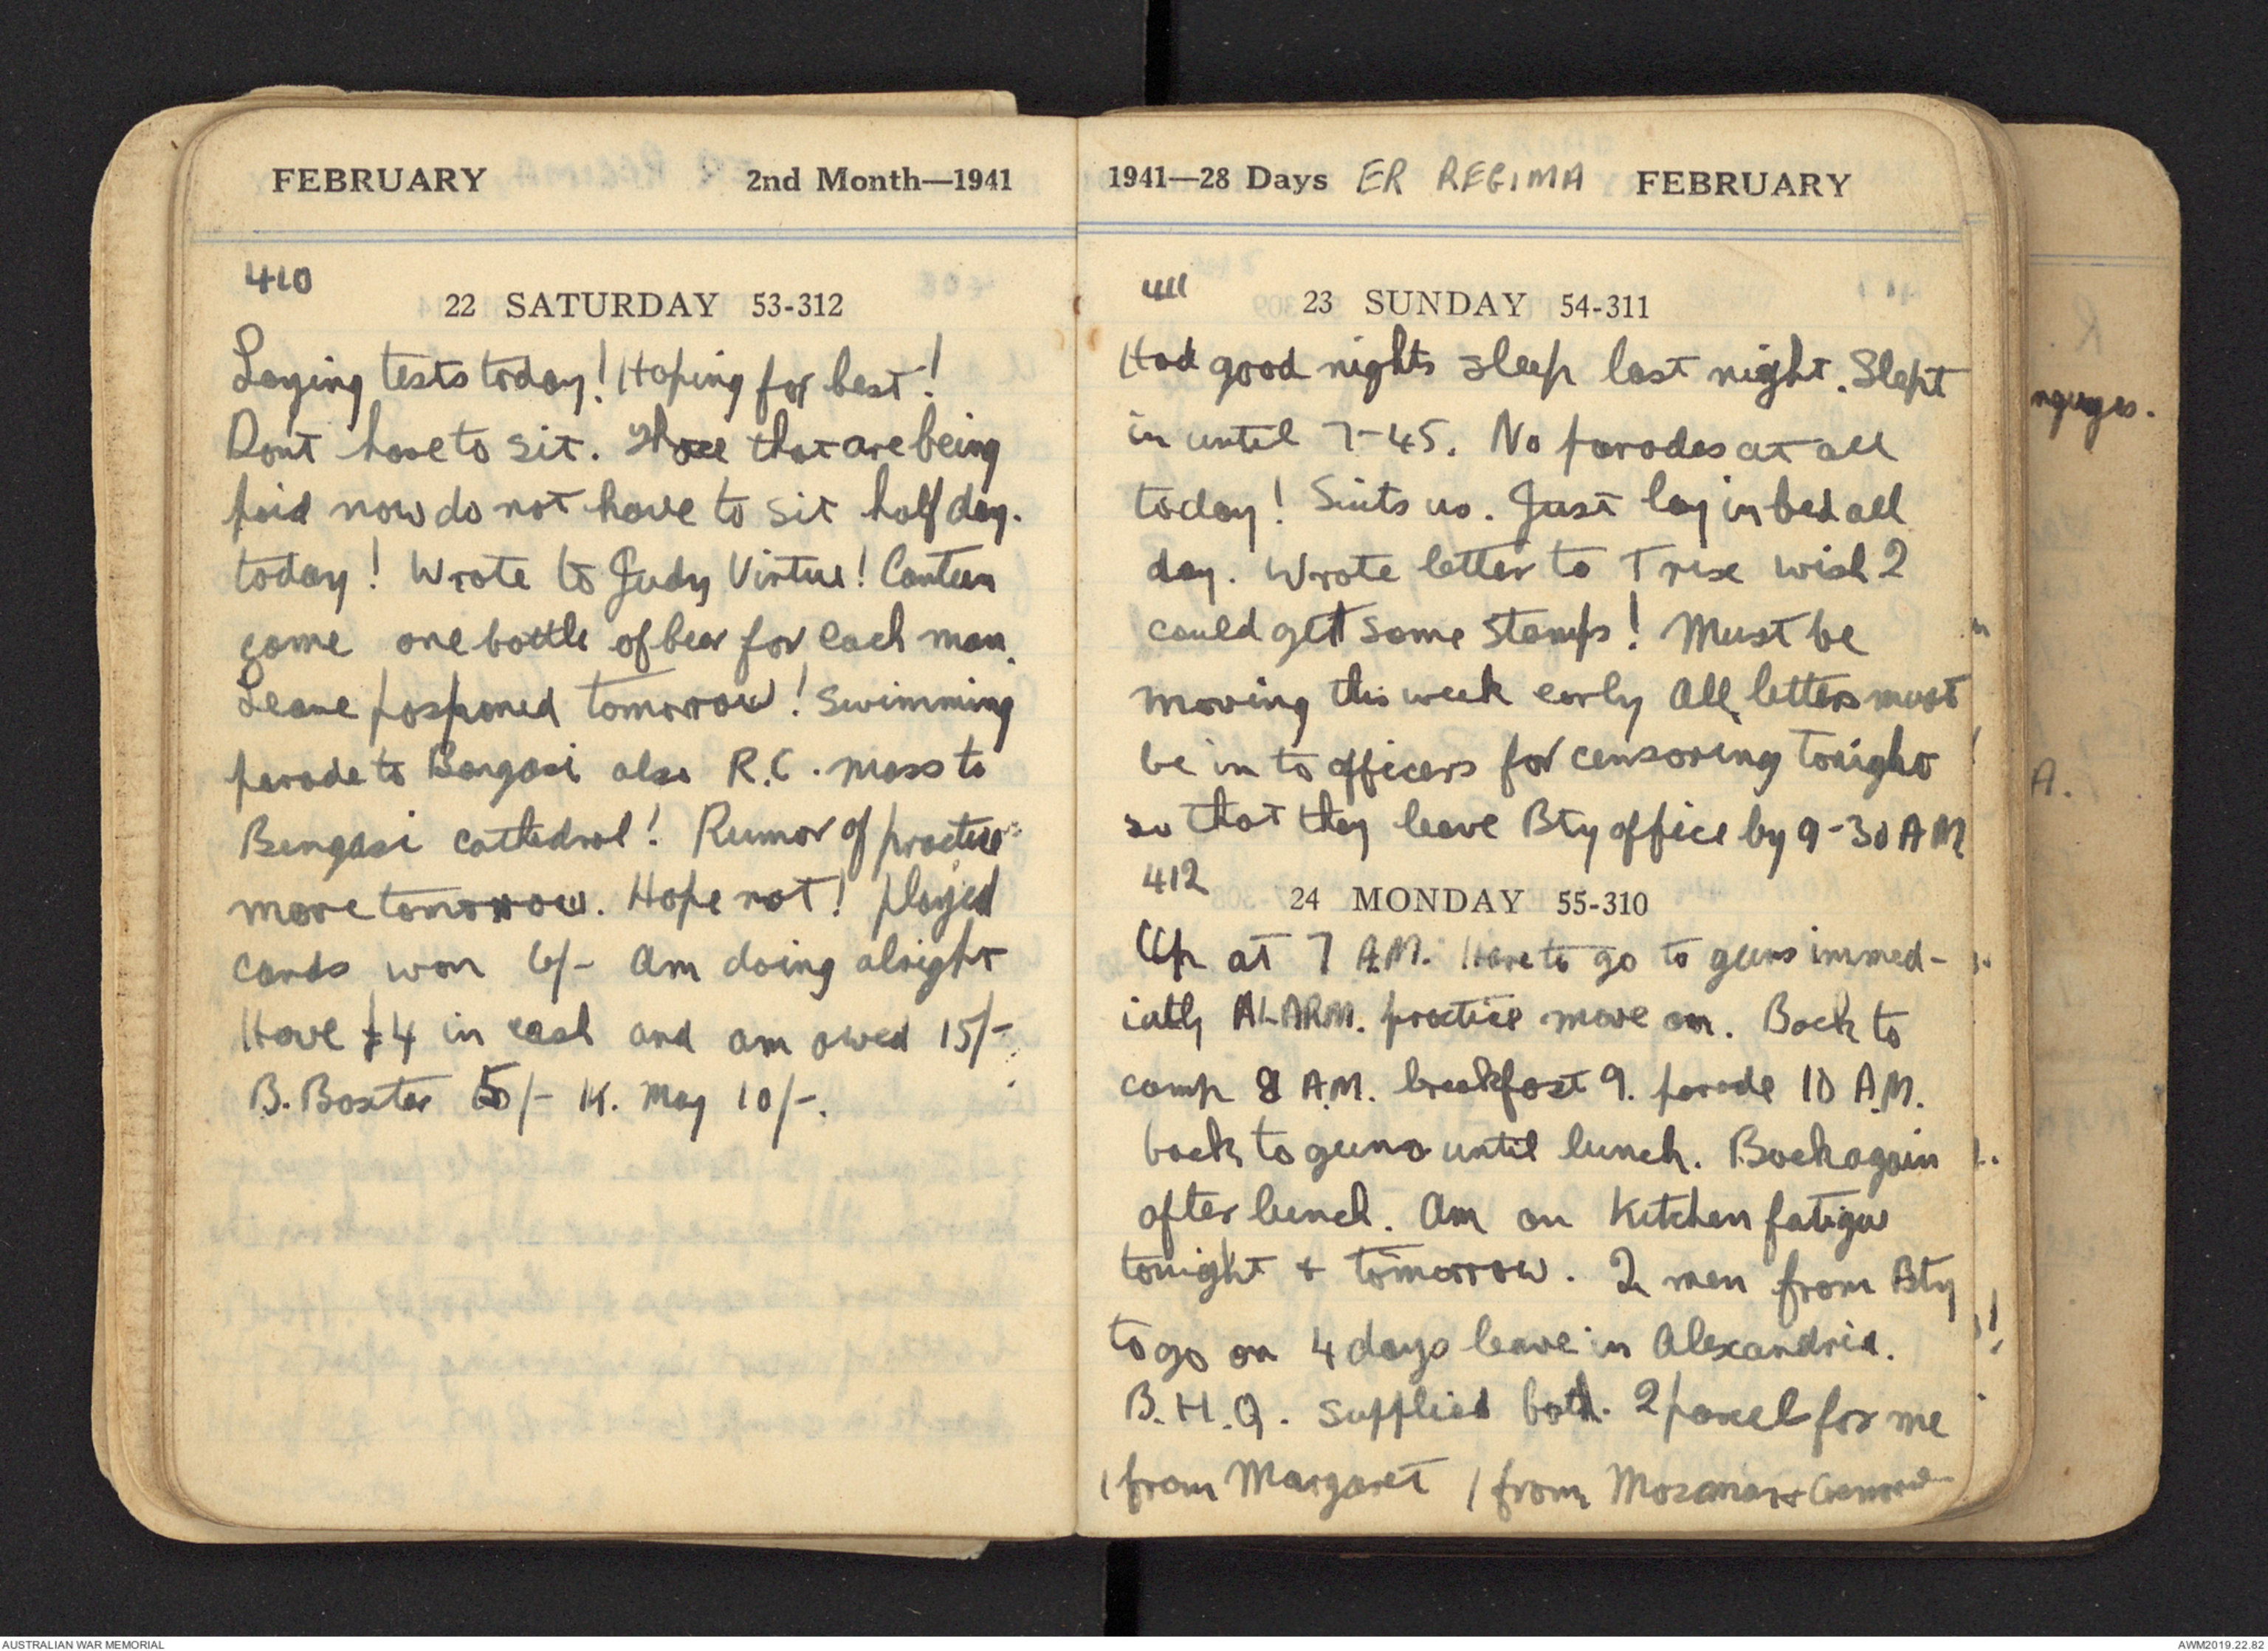 FEBRUARY 2nd Month—1941
410
22 SATURDAY 53-312
Laying tests today! Hoping for best!
Dont have to sit. Those that are being
paid now do not have to sit half day.
today! Wrote to Judy Virtue! Canteen
came one bottle of beer for each man.
Leave posponed tomorrow! Swimming
parade to Bengasi also R.C. mass to
Bengasi cathedral! Rumor of practice
move tomorrow. Hope not! played
cards won 6/- Am doing alright
Have £4 in cash and am owed 15/-
B. Baxter 5/- K. May 10/-.
1941—28 Days ER REGIMA FEBRUARY
411
23 SUNDAY 54-311
Had good nights sleep last night. Slept
in until 7-45. No parades at all
today! Suits us. Just lay in bed all
day. Wrote letter to Trixe wish I
could get some stamps! Must be
moving this week early All letters must
be in to officers for censoring tonight
so that they leave Bty office by 9-30 AM
412
24 MONDAY 55-310
Up at 7 A.M. Have to go to guns immed-
iatly ALARM. practice move on. Back to
camp 8 A.M. breakfast 9. parade 10 A.M.
back to guns until lunch. Back again
after lunch. Am on Kitchen fatigue
tonight + tomorrow. 2 men from Bty
to go on 4 days leave in Alexandria.
B.H.Q. supplied both. 2 parcel for me
1 from Margaret 1 from
nguges.
A.
AUSTRALIAN WAR MEMORIAL AWM2019.22.82